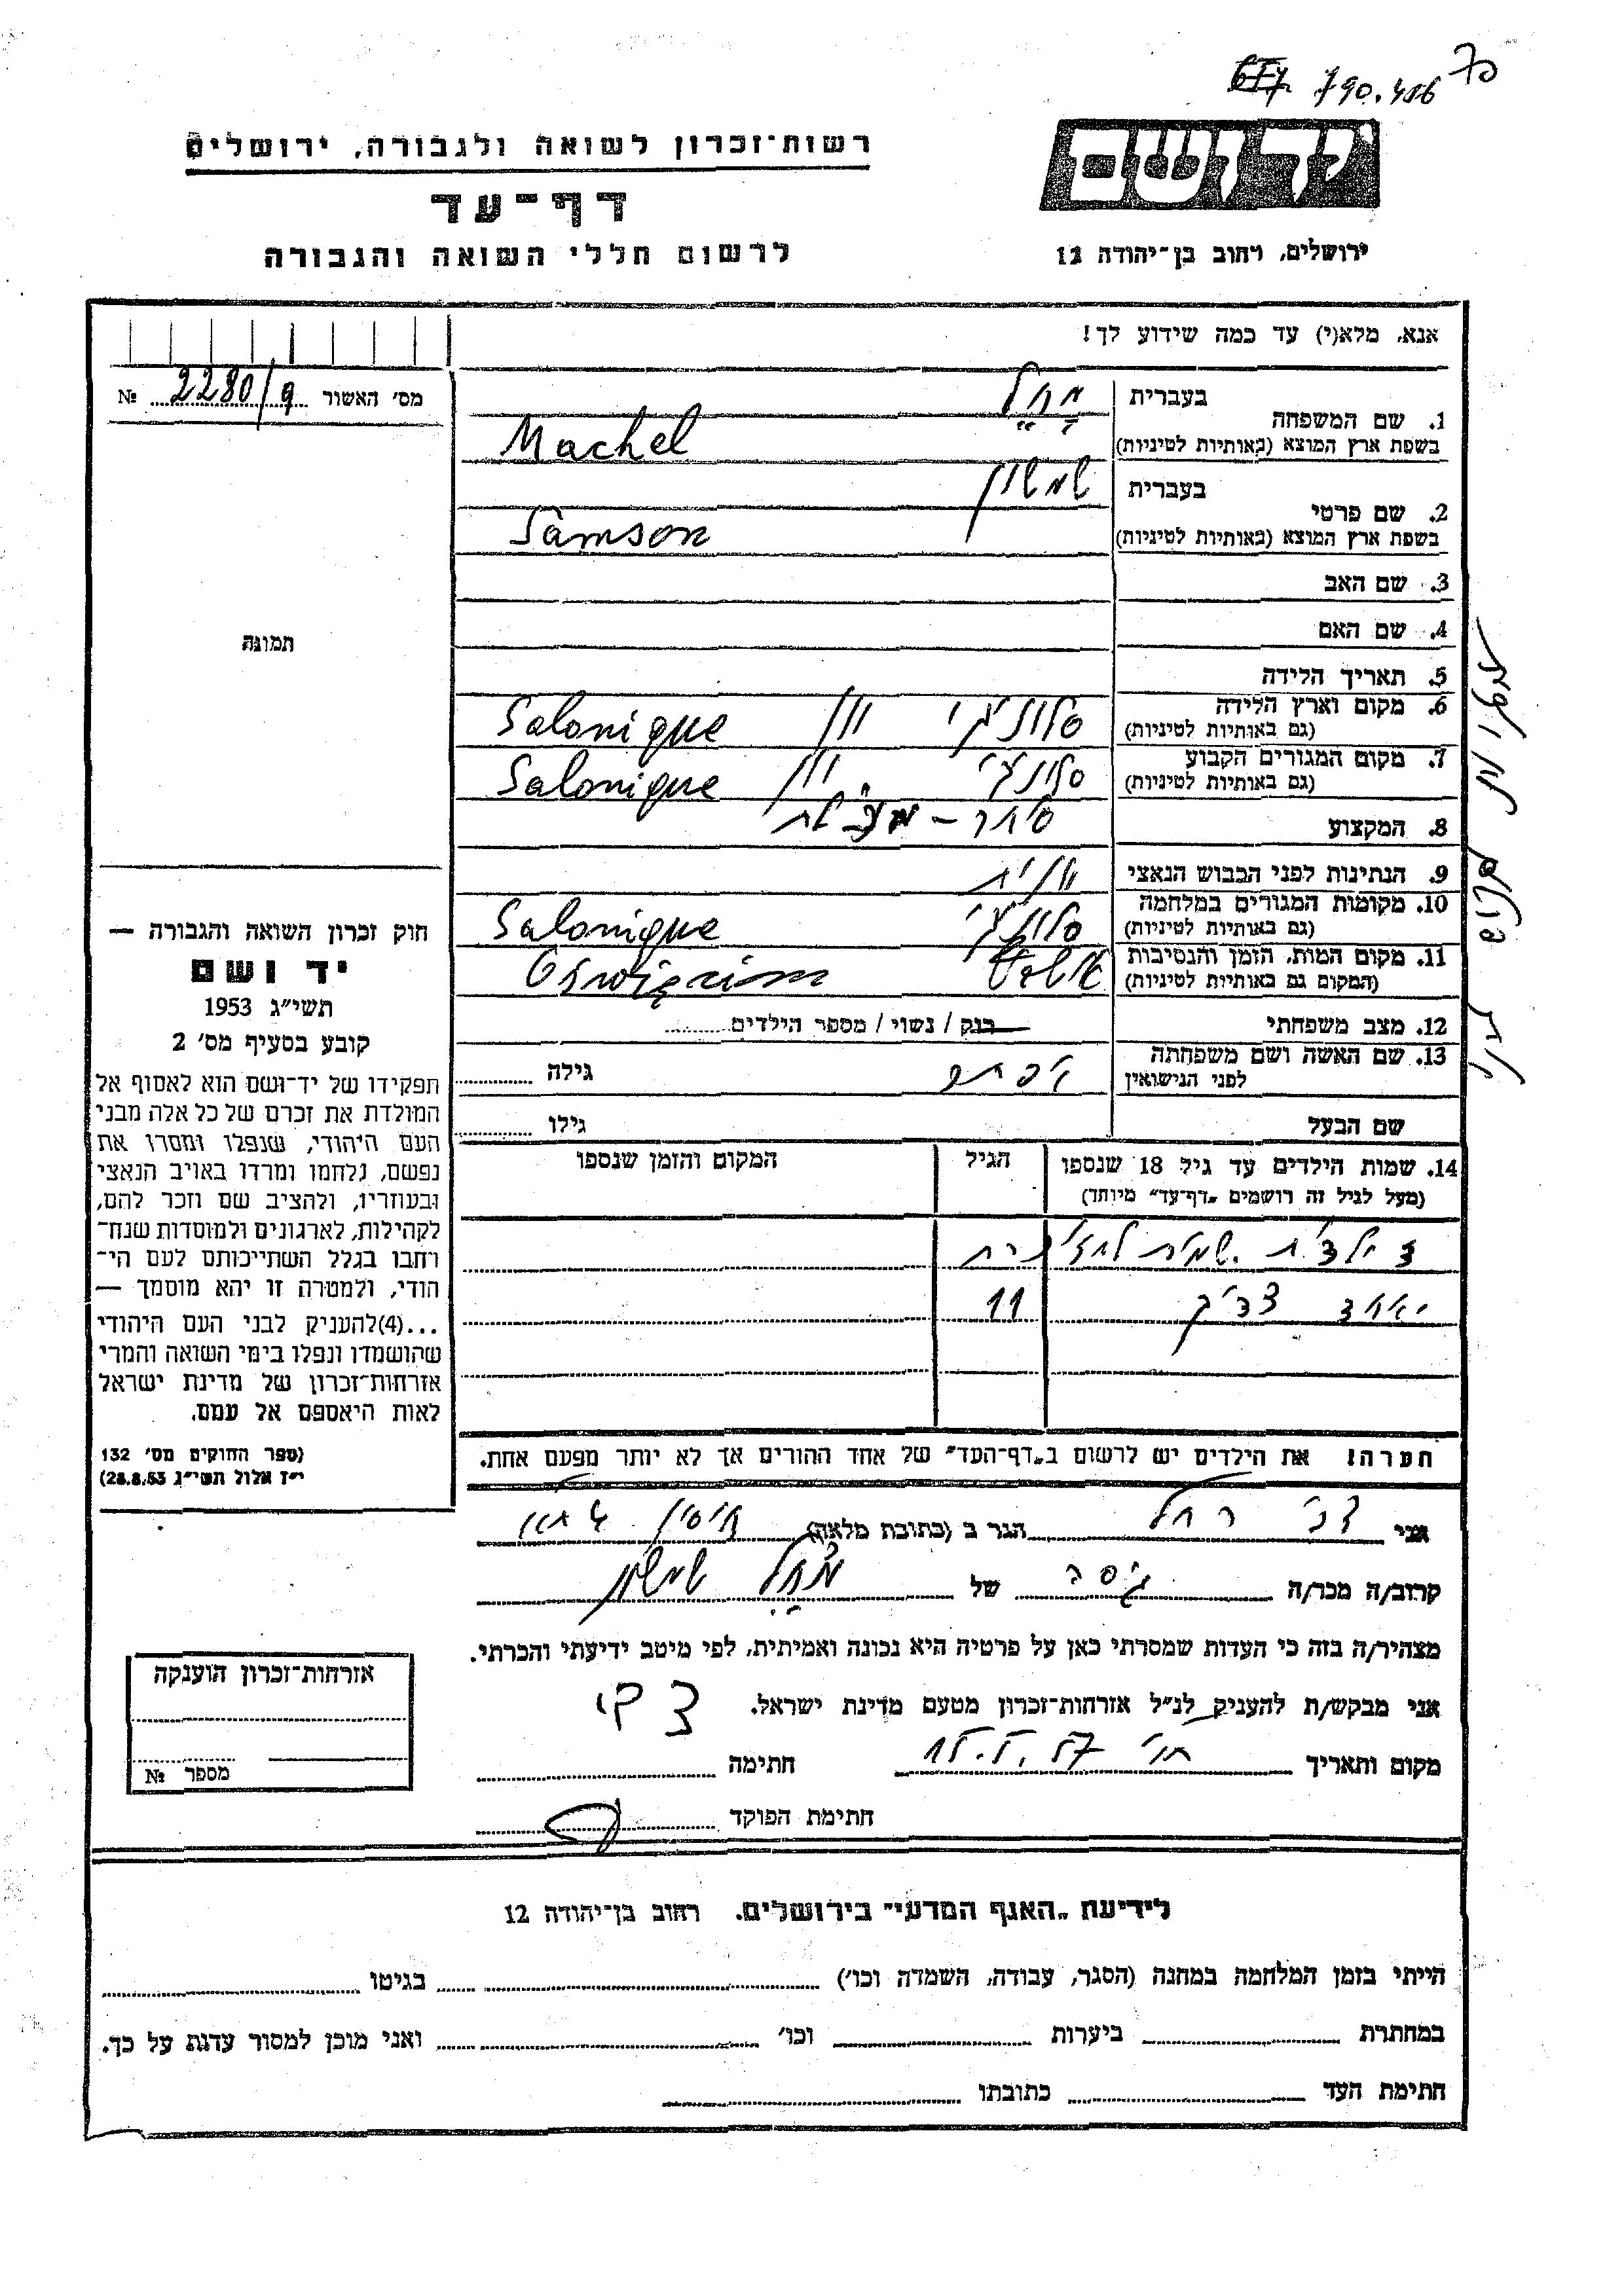 790.416 70
רשות-זכרון לשואה ולגבורה, ירושלים
דף-עד
לרשום חללי השואה והגבורה
ירושלים, רחוב בן-יהודה 12
אנא, מלא(י) עד כמה שידוע לך!
מס׳ האשור 2280/9 №
1. שם המשפחה
בעברית מחל
בשפת ארץ המוצא (באותיות לטיניות) Machel
2. שם פרטי
בעברית שמשון
בשפת ארץ המוצא (באותיות לטיניות) Samson
3. שם האב
4. שם האם
5. תאריך הלידה
6. מקום וארץ הלידה
(גם באותיות לטיניות) סלוניקי יוון Salonique
7. מקום המגורים הקבוע
(גם באותיות לטיניות) סלוניקי יוון Salonique
8. המקצוע סוחר -
9. הנתינות לפני הכבוש הנאצי יוונית
10. מקומות המגורים במלחמה
(גם באותיות לטיניות) סלוניקי Salonique
11. מקום המות, הזמן והנסיבות
(המקום גם באותיות לטיניות) Oswięcim
12. מצב משפחתי רווק / נשוי / מספר הילדים
13. שם האשה ושם משפחתה
לפני הנישואין
גילה
שם הבעל
גילו
14. שמות הילדים עד גיל 18 שנספו
(מעל לגיל זה רושמים „דף-עד״ מיוחד)
הגיל
המקום והזמן שנספו
11
תמונה
חוק זכרון השואה והגבורה —
יד ושם
תשי״ג 1953
קובע בסעיף מס׳ 2
תפקידו של יד-ושם הוא לאסוף אל
המולדת את זכרם של כל אלה מבני
העם היהודי, שנפלו ומסרו את
נפשם, נלחמו ומרדו באויב הנאצי
ובעוזריו, ולהציב שם וזכר להם,
לקהילות, לארגונים ולמוסדות שנח-
רבו בגלל השתייכותם לעם הי-
הודי, ולמטרה זו יהא מוסמך —
...(4)להעניק לבני העם היהודי
שהושמדו ונפלו בימי השואה והמרי
אזרחות-זכרון של מדינת ישראל
לאות היאספם אל עמם.
(ספר החוקים מס׳ 132
י״ז אלול תשי״ג 28.8.53)
הערה! את הילדים יש לרשום ב„דף-העד״ של אחד ההורים אך לא יותר מפעם אחת.
אני רחל הגר ב (כתובת מלאה)
קרוב/ה מכר/ה גיסה של מחל שמשון
מצהיר/ה בזה כי העדות שמסרתי כאן על פרטיה היא נכונה ואמיתית, לפי מיטב ידיעתי והכרתי.
אני מבקש/ת להעניק לנ״ל אזרחות-זכרון מטעם מדינת ישראל.
מקום ותאריך חתימה
חתימת הפוקד
אזרחות-זכרון הוענקה
מספר №
לידיעת „האגף המדעי״ בירושלים, רחוב בן-יהודה 12
הייתי בזמן המלחמה במחנה (הסגר, עבודה, השמדה וכו׳) בגיטו
במחתרת ביערות וכו׳ ואני מוכן למסור עדות על כך.
חתימת העד כתובתו